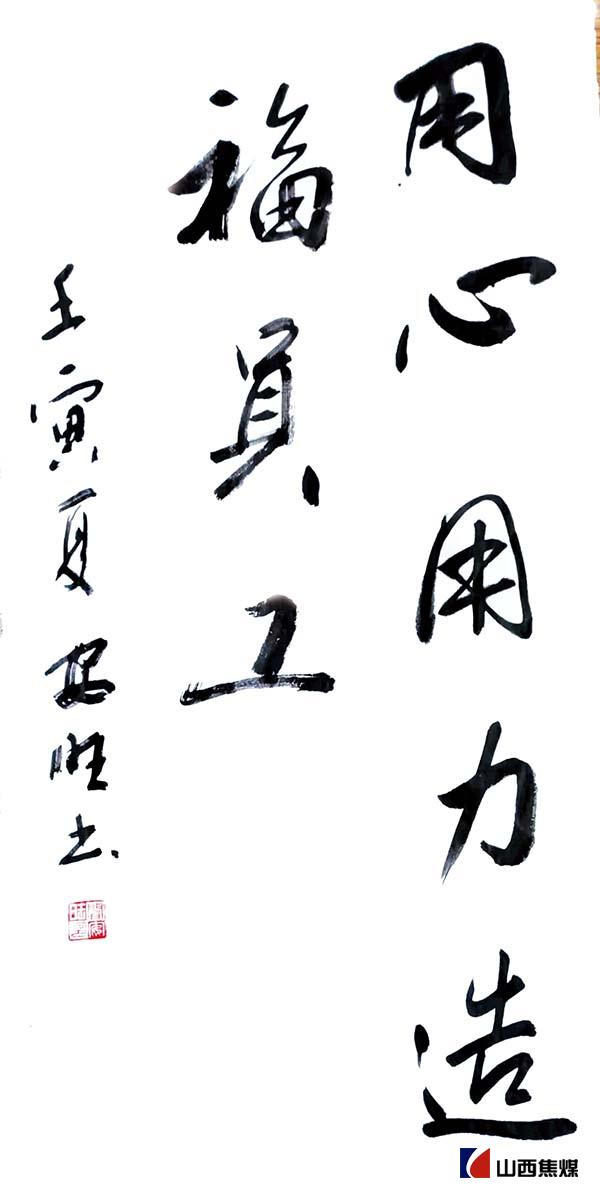 用心用力造
福员工
壬寅夏 安旺书
山西焦煤